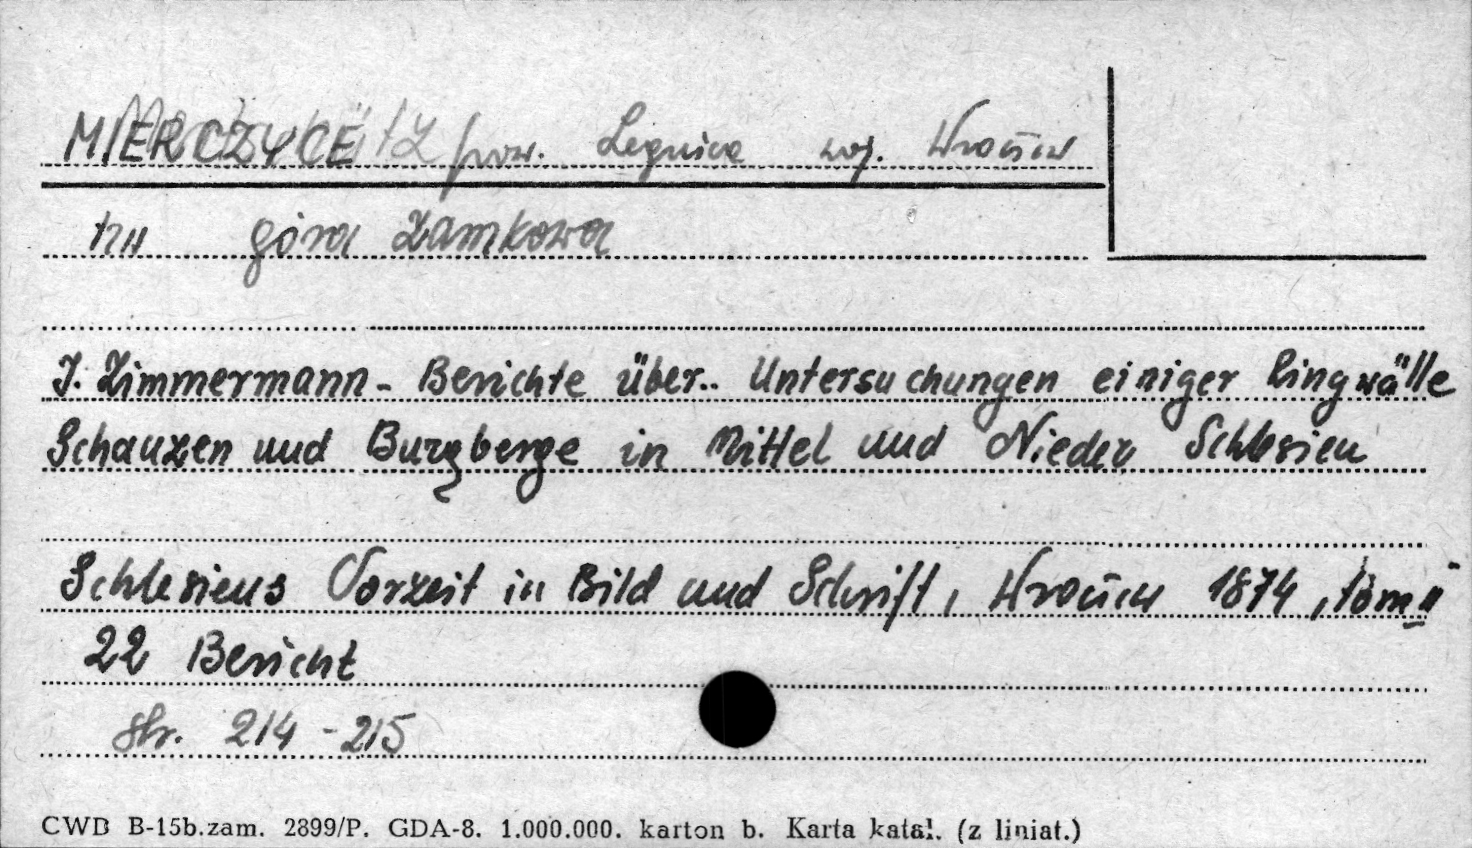 MIERCZYCE pow. Legnica woj. Wrocław
nu góra Zamkowa
J. Zimmermann - Berichte über.. Untersuchungen einiger Ringwälle
Schauzen und Burgberge in Mittel und Nieder Schlesien
Schlesiens Vorzeit in Bild und Schrift, Wrocław 1874, tom II
22 Bericht
str. 214 - 215
CWD B-15b.zam. 2899/P. GDA-8. 1.000.000. karton b. Karta katal. (z liniat.)